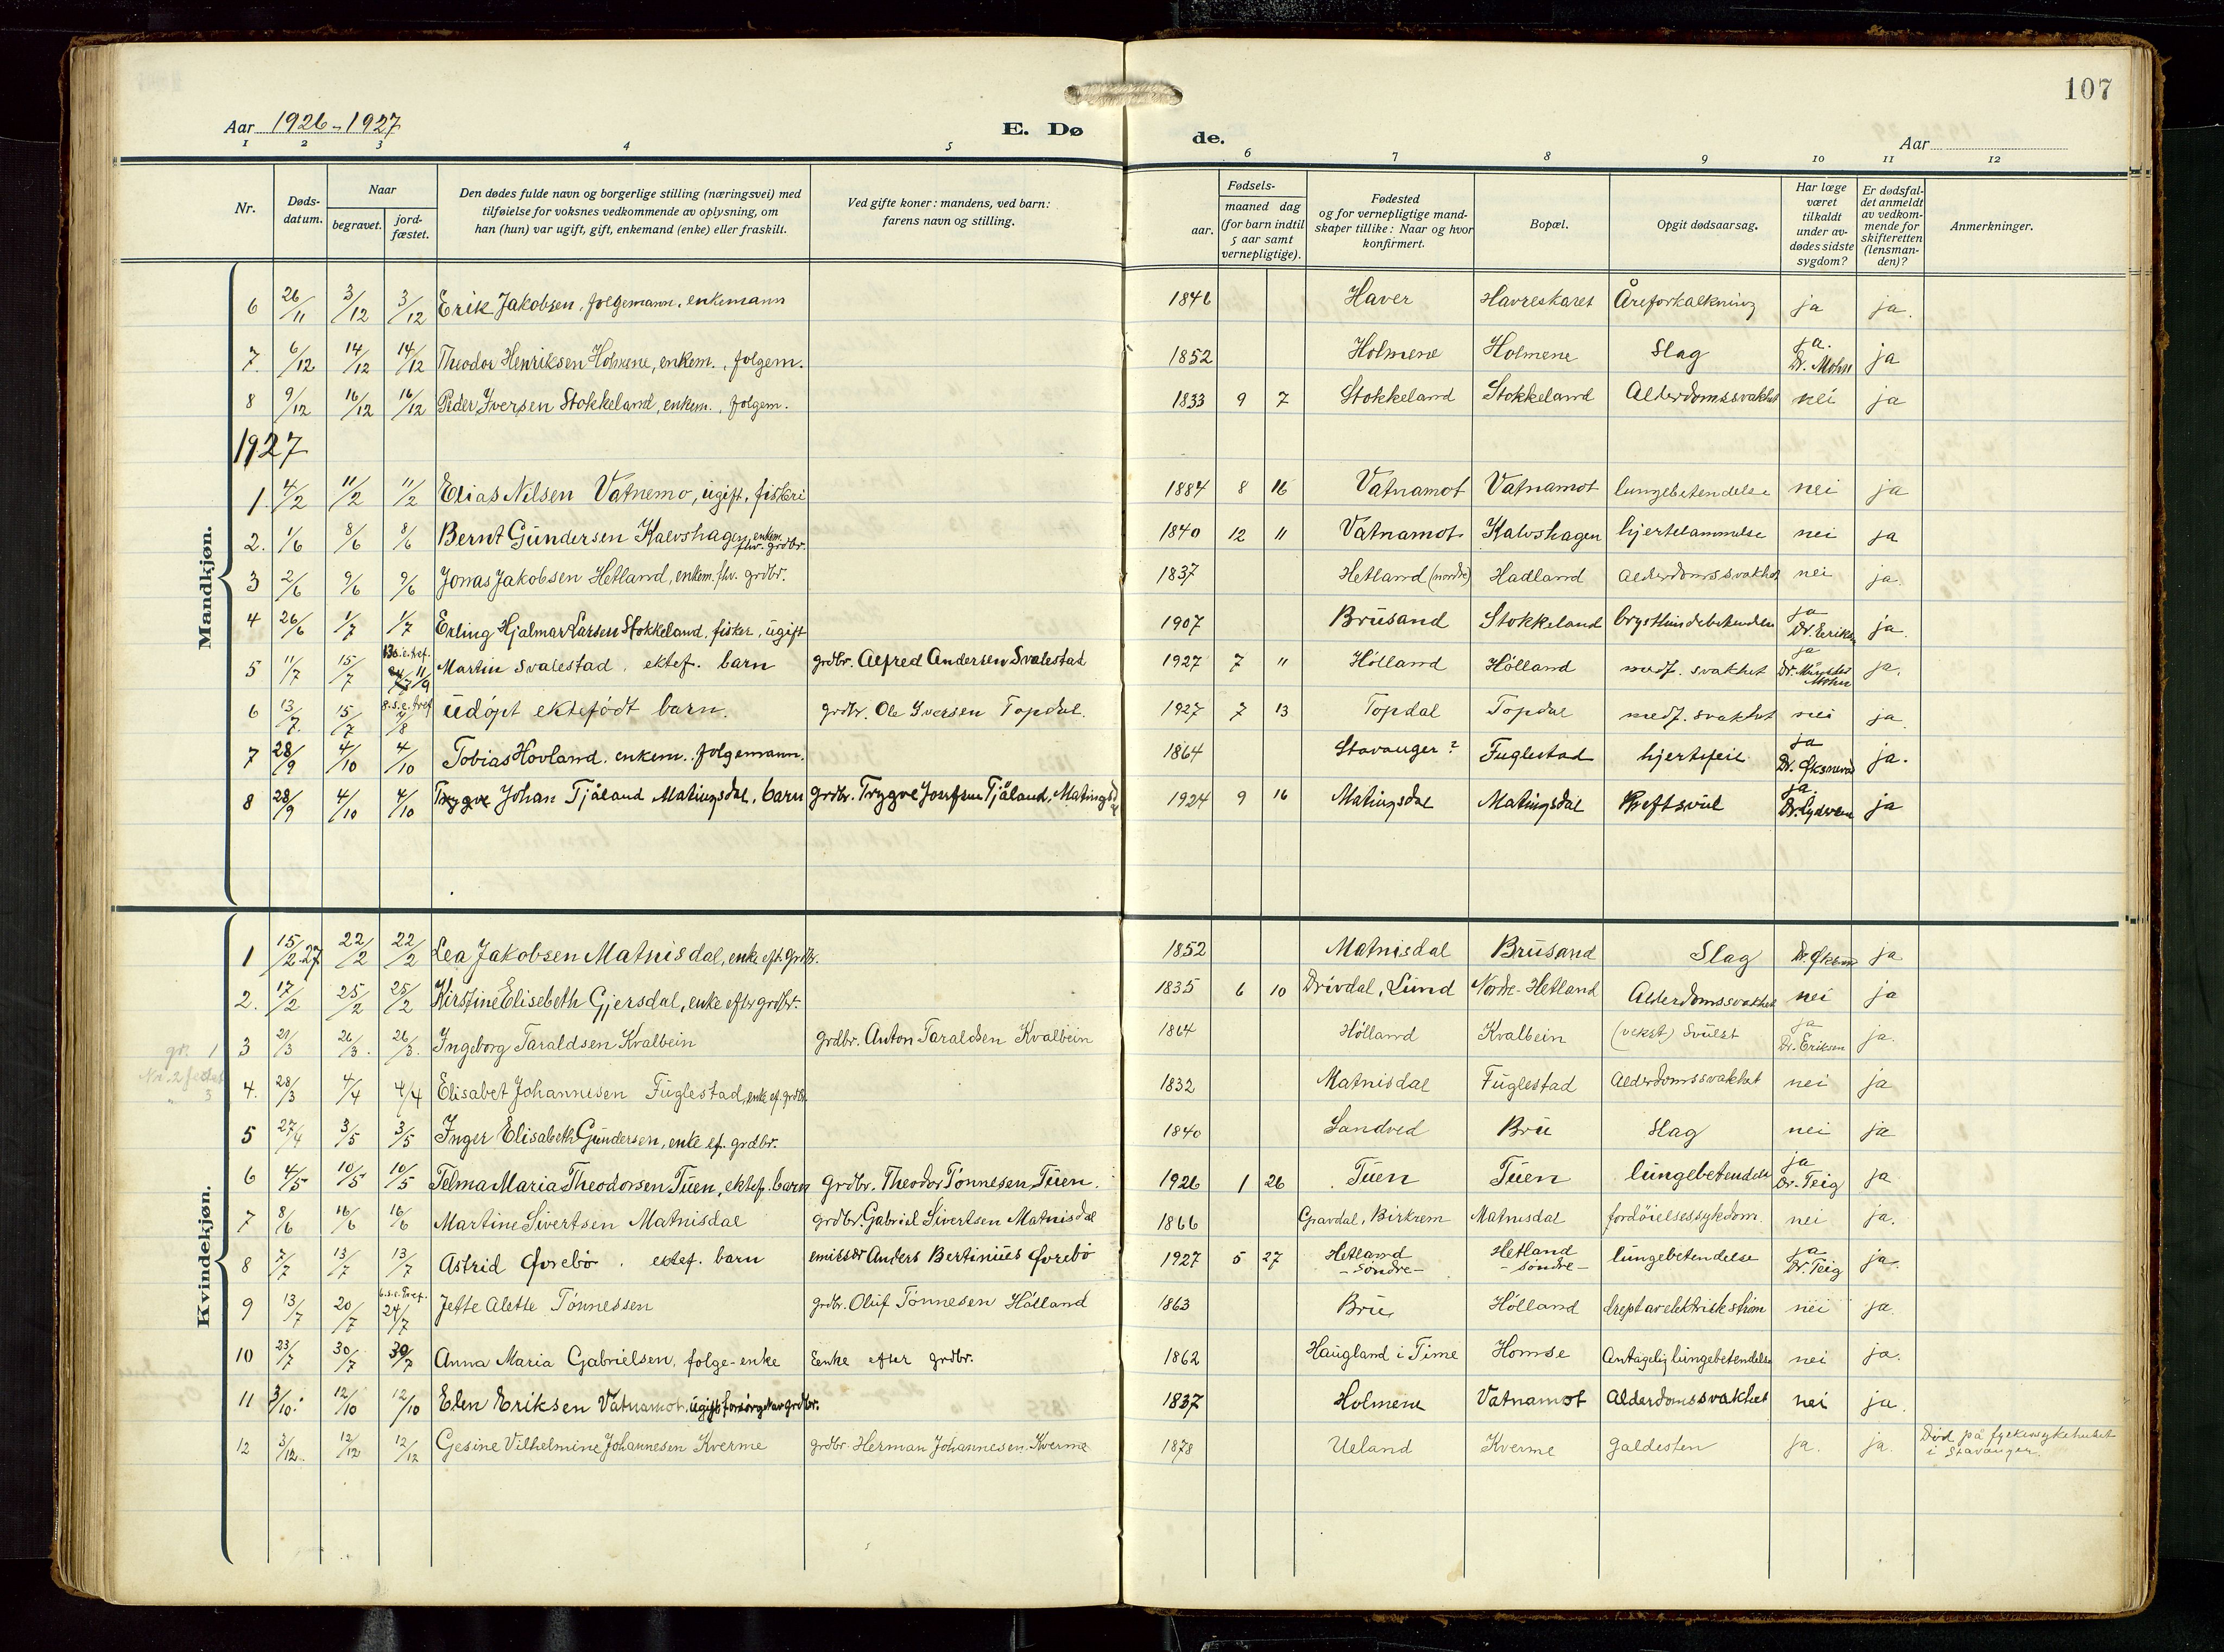 107
Aar 1926-1927 E. Dø de. Aar
1 2 3 4 5 6 7 8 9 10 11 12
Nr. Døds-datum. Naar begravet. jord-fæstet. Den dødes fulde navn og borgerlige stilling (næringsvei) med tilføielse for voksnes vedkommende av oplysning, om han (hun) var ugift, gift, enkemand (enke) eller fraskilt. Ved gifte koner: mandens, ved barn: farens navn og stilling. Fødsels- aar. maaned dag (for barn indtil 5 aar samt vernepligtige). Fødested og for vernepligtige mandskaper tillike: Naar og hvor konfirmert. Bopæl. Opgit dødsaarsag. Har læge været tilkaldt under avdødes sidste sygdom? Er dødsfaldet anmeldt av vedkommende for skifteretten (lensmanden)? Anmerkninger.
Mandkjøn.
6 26/11 3/12 3/12 Erik Jakobsen, folgemann, enkemann 1846 Haver Havreskaret Åreforkalkning ja ja.
7. 6/12 14/12 14/12 Theodor Henriksen Holmene, enkem., folgem. 1852 Holmene Holmene Slag ja. Dr. Mohn ja
8 9/12 16/12 16/12 Peder Iversen Stokkeland, enkem., folgem. 1833 9 7 Stokkeland Stokkeland Alderdomssvakhet nei ja
1927
1. 4/2 11/2 11/2 Elias Nilsen Vatnemo, ugift, fiskeri 1884 8 16 Vatnamot Vatnamot lungebetendelse nei ja
2. 1/6 8/6 8/6 Bernt Gundersen Kalvshagen, enkem. fhv. grdbr. 1840 12 11 Vatnamot Kalvshagen hjertelammelse nei ja
3 2/6 9/6 9/6 Jonas Jakobsen Hetland, enkem. fhv. grdbr. 1837 Hetland (nordre) Hadland Alderdomssvakhet nei ja.
4 26/6 1/7 1/7 Erling Hjalmar Larsen Stokkeland, fisker, ugift 1907 Brusand Stokkeland brysthindebetendelse ja Dr. Eriksen ja.
5 11/7 15/7 13 s.e. tref. 11/9 Martin Svalestad, ektef. barn grdbr. Alfred Andersen Svalestad 1927 7 11 Hölland Hölland medf. svakhet ja Dr. Mohn ja.
6 13/7. 15/7 8. s. e. tref 7/8 Udöpt ektefödt barn. grdbr. Ole Iversen Topdal. 1927 7 13 Topdal Topdal medf. svakhet nei ja
7 28/9 4/10 4/10 Tobias Hovland, enkem. folgemann. 1864 Stavanger? Fuglestad hjertefeil ja Dr. Øksnevad ja.
8 28/9 4/10 4/10 Trygve Johan Tjåland Matingsdal, barn grdbr. Trygve Tjåland, Matingsdal 1924 9 16 Matingsdal Matingsdal Kreftsvul ja. ja
Kvindekjøn.
1 15/2 27 22/2 22/2 Lea Jakobsen Matnisdal, enke eft. grdbr. 1852 Matnisdal Brusand Slag ja
2. 17/2 25/2 25/2 Kirstine Elisebeth Gjersdal, enke efter grdbr. 1835 6 10 Drivdal, Lund Nordre-Hetland Alderdomssvakhet nei ja
3 21/3 26/3. 26/3. Ingeborg Taraldsen Kvalbein grdbr. Anton Taraldsen Kvalbein 1864 Hölland Kvalbein (vekst) Svulst ja Dr. Eriksen ja.
4. 28/3 4/4 4/4 Elisabet Johannesen Fuglestad, enke ef. grdbr. 1832 Matnisdal Fuglestad Alderdomssvakhet nei ja
5 27/4 3/5 3/5 Inger Elisabeth Gundersen, enke ef. grdbr. 1840 Sandved Bru Slag nei ja
6 4/5 10/5 10/5 Telma Maria Theodorsen Tuen, ektef. barn grdbr. Theodor Tönnesen Tuen. 1926 1 26 Tuen Tuen lungebetendelse ja Dr. Teig ja
7 8/6 16/6 16/6 Martine Sivertsen Matnisdal grdbr. Gabriel Sivertsen Matnisdal 1866 Gravdal, Birkrem Matnisdal fordöielsessykdom. nei ja.
8 7/7 13/7 13/7 Astrid Øvrebö. ektef. barn emissær Anders Bertinius Øvrebö 1927 5 27 Hetland -Söndre- Hetland -söndre- lungebetendelse ja Dr. Teig ja.
9 13/7 20/7 6. s. e. tref. 24/7 Jette Alette Tönnessen grdbr. Oluf Tönnesen Hölland 1863 Bru, Hölland drept av elektrisk ström nei ja.
10 23/7 30/7 30/7 Anna Maria Gabrielsen, folge-enke Eenke efter grdbr. 1862 Haugland i Time Homse Antagelig lungebetendelse nei ja.
11 3/10. 12/10 12/10 Elen Eriksen Vatnamot, ugift forsörget av grdbr. 1837 Holmene Vatnamot Alderdomssvakhet nei ja.
12 3/12. 12/12 12/12 Gesine Vilhelmine Johannesen Kverme grdbr. Herman Johannesen Kverme 1878 Ueland Kverme galdesten ja. ja. Död på fylkessykehuset i Stavanger.